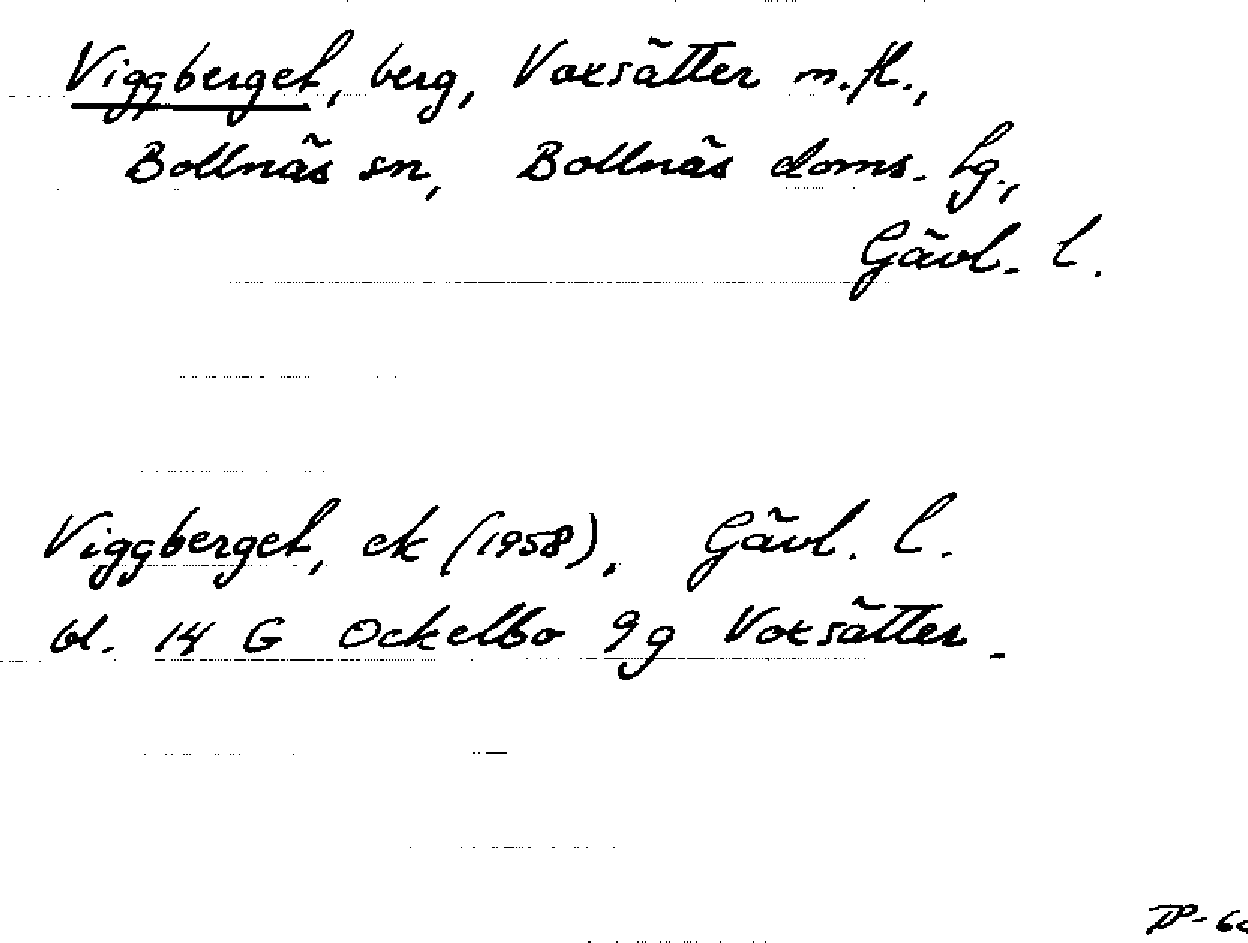 Viggberget, berg, Voxsätter m.fl.,
Bollnäs sn, Bollnäs doms. hg.,
Gävl. l.
Viggberget, ek (1958), Gävl. l.
bl. 14 G Ockelbo 9g Voxsätter.